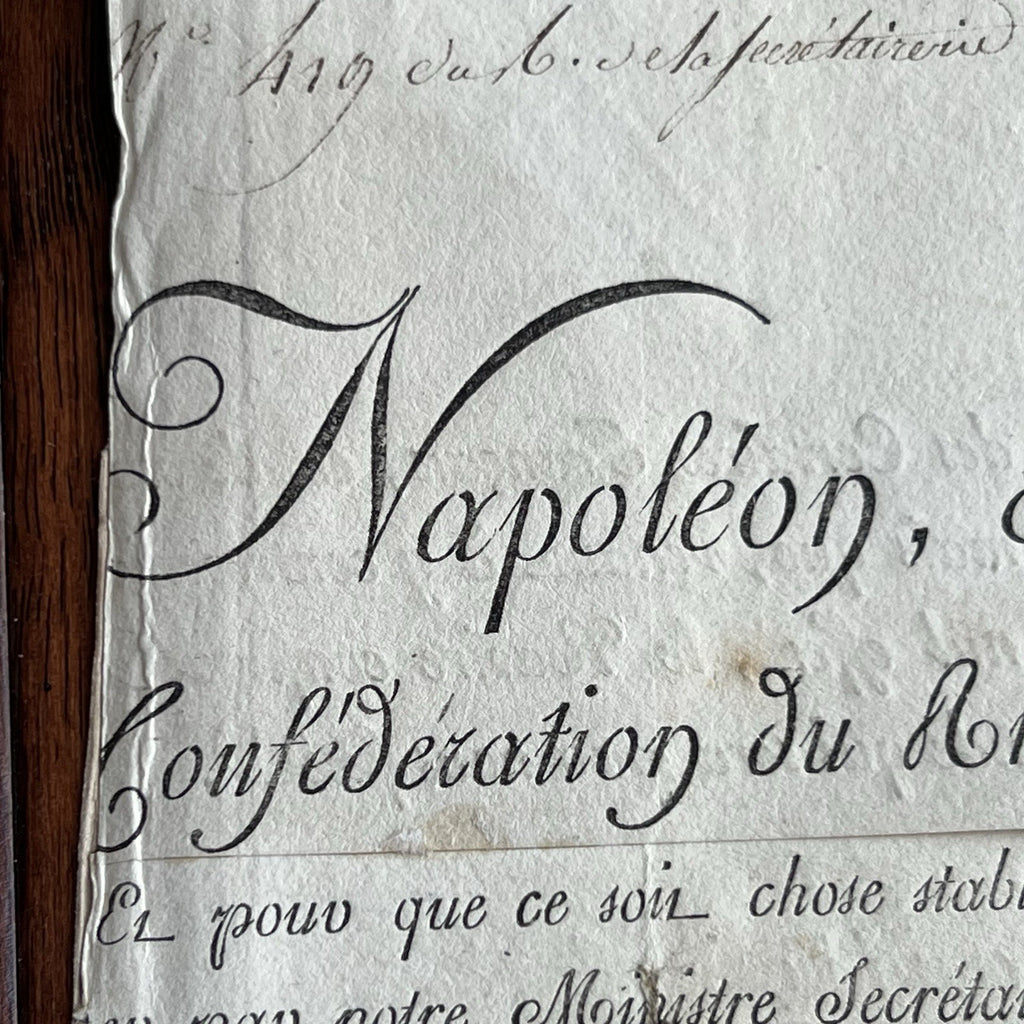 N.º 419 du b. de la Secrétairerie
Napoléon,
Confédération du
Et pour que ce soit chose stab
par notre Ministre Secréta